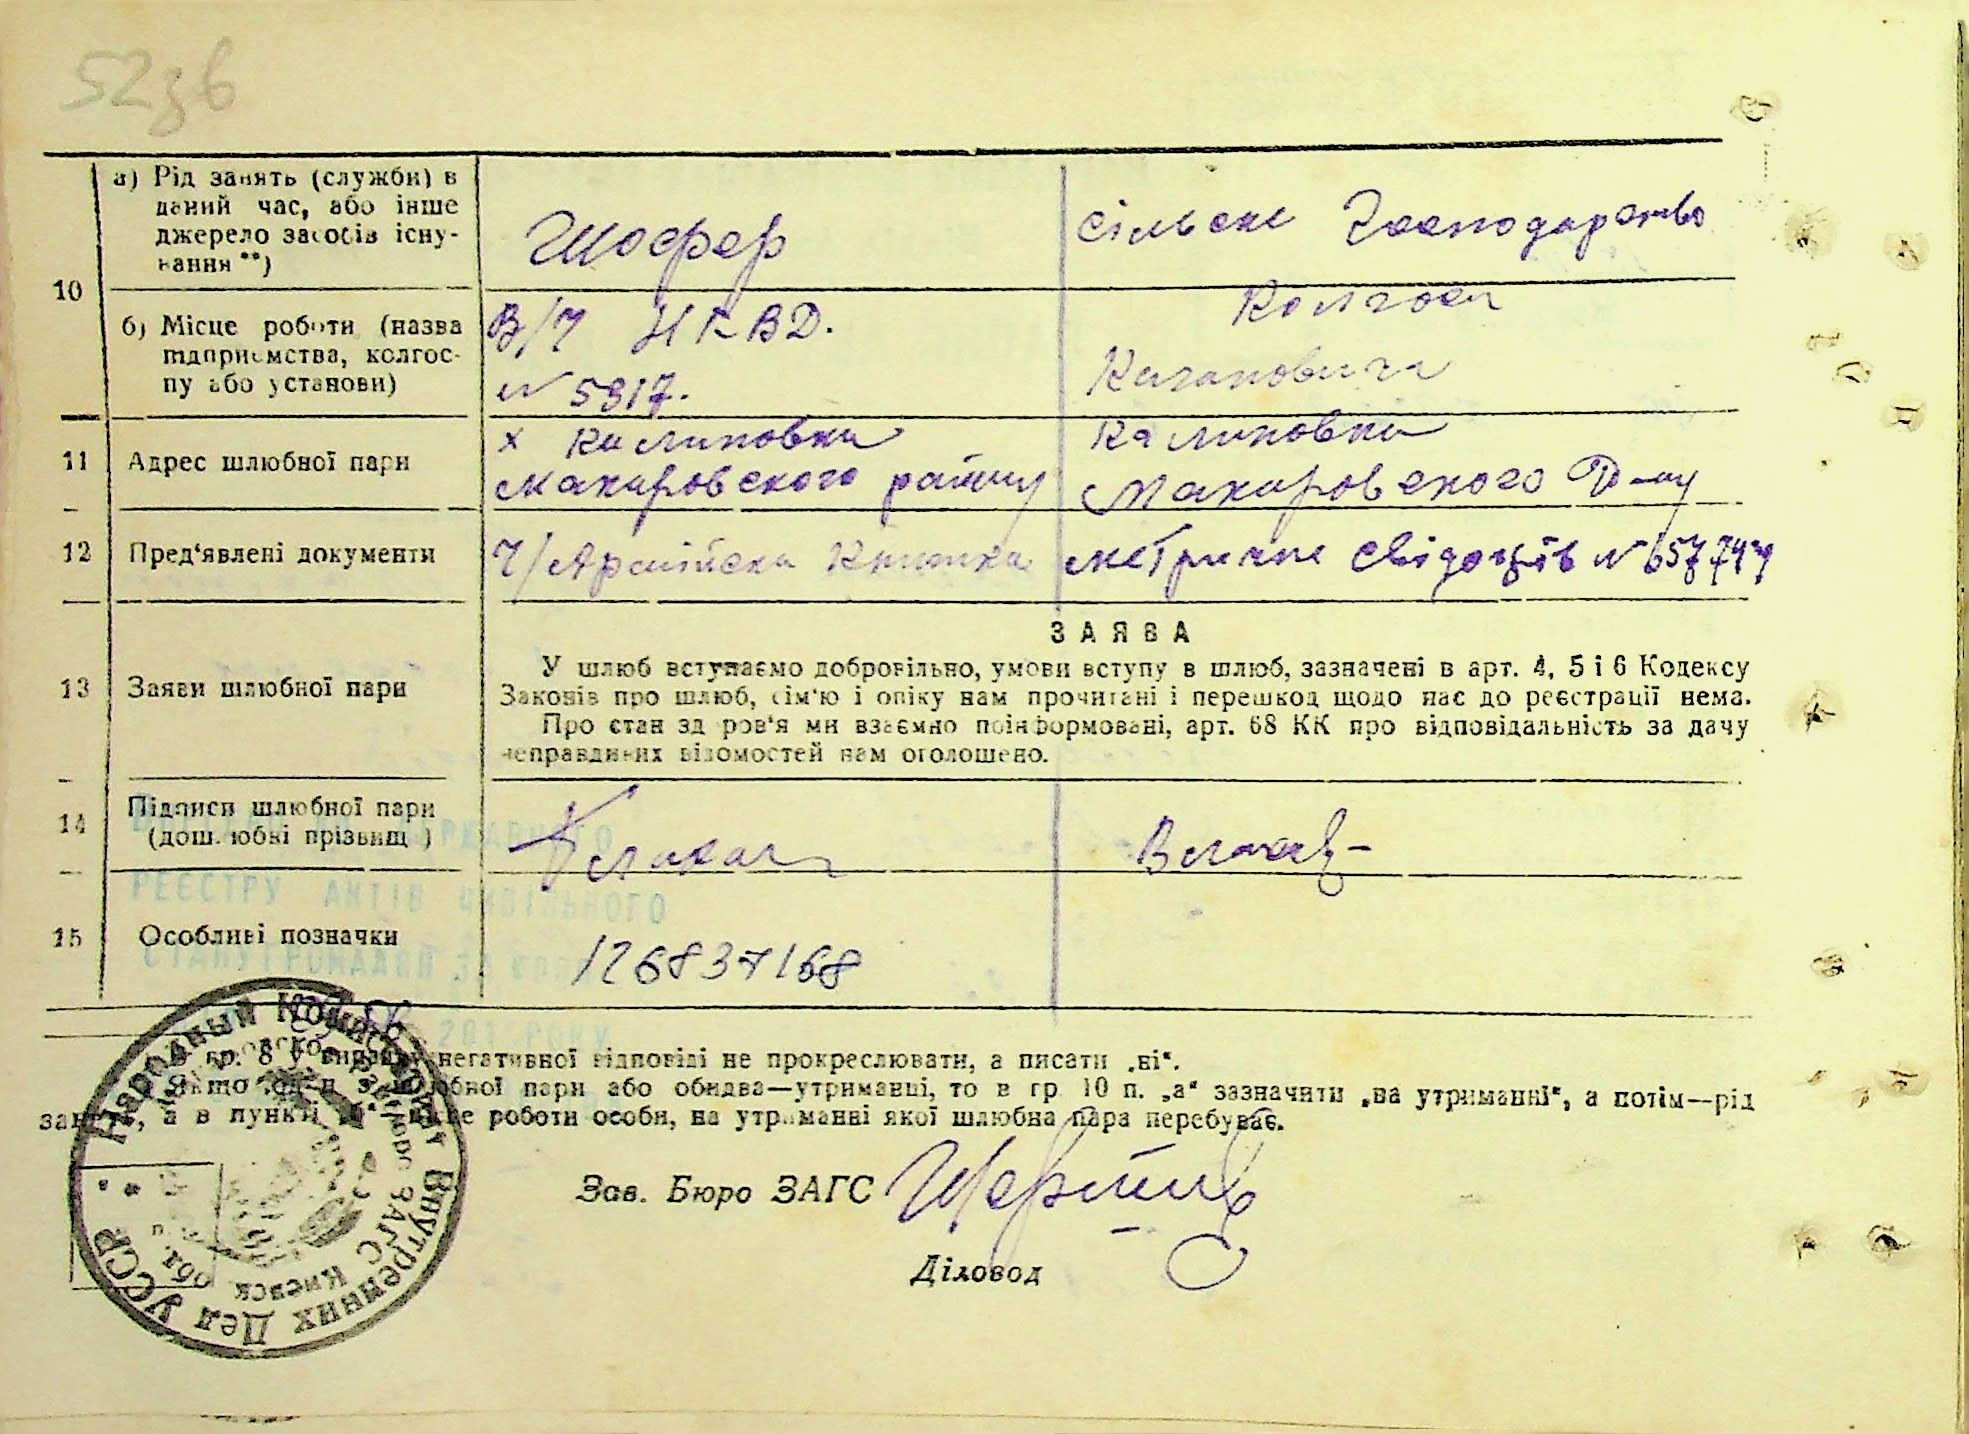 52зв
а) Рід занять (служби) в
даний час, або інше
джерело засобів існу-
вання **)
Шофер
сільске Господарство
10
б) Місце роботи (назва
підприємства, колгос-
пу або установи)
В/Ч НКВД.
N 5317.
Колгосп
Кагановича
11
Адрес шлюбної пари
х Калиновка
Макаровского району
Калиновка
Макаровского Р-ну
12
Пред'явлені документи
Ч/Армійска Книжка
метричне свідоцтв N
13
Заяви шлюбної пари
ЗАЯВА
У шлюб вступаємо добровільно, умови вступу в шлюб, зазначені в арт. 4, 5 і 6 Кодексу
Законів про шлюб, сім'ю і опіку нам прочитані і перешкод щодо нас до реєстрації нема.
Про стан здоров'я ми взаємно поінформовані, арт. 68 КК про відповідальність за дачу
неправдивих відомостей нам оголошено.
14
Підписи шлюбної пари
(дошлюбні прізвищ)
РЕЄСТРУ АКТІВ ЦИВІЛЬНОГО
15
Особливі позначки
126837168
201 РОКУ
В гр. 8 у випадку негативної відповіді не прокреслювати, а писати „ні".
Якщо один з шлюбної пари або обидва—утриманці, то в гр 10 п. „а" зазначити „на утриманні", а потім—рід
занять, а в пункті місце роботи особи, на утриманні якої шлюбна пара перебуває.
Зав. Бюро ЗАГС
Діловод
Народный Комиссариат Внутренних Дел УССР
Районное бюро ЗАГС Киевск. обл.